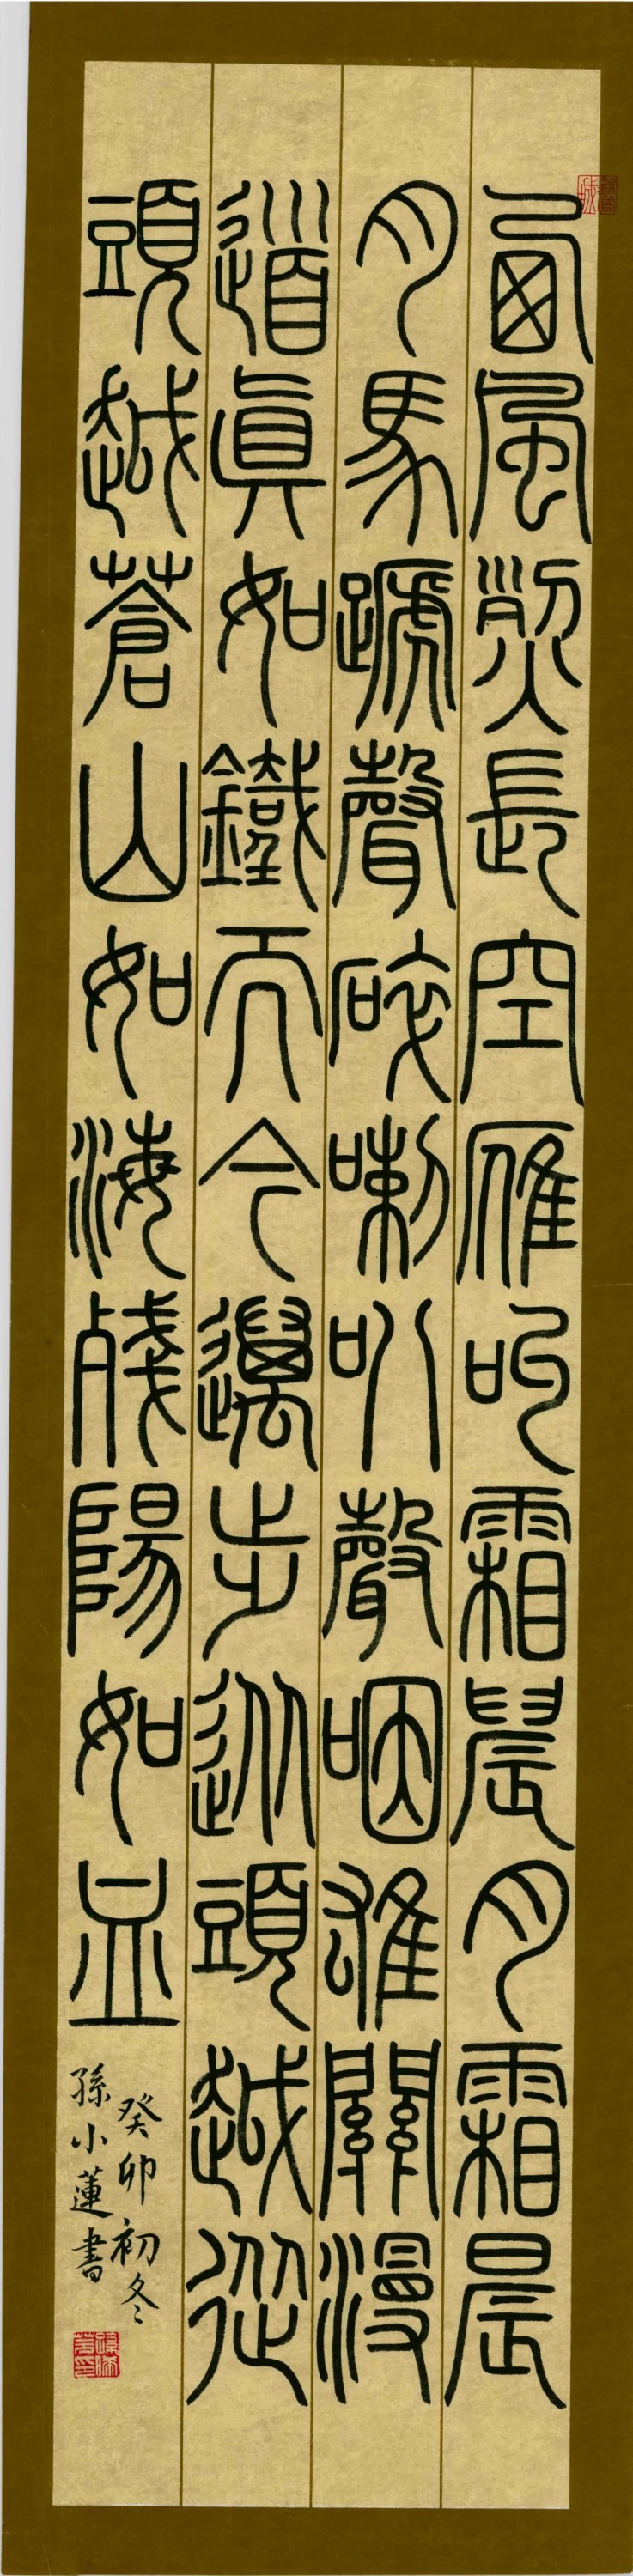 西風烈長空雁叫霜晨月霜晨
月馬蹏聲碎喇叭聲咽雄關漫
道眞如鐵而今邁步從頭越從
頭越蒼山如海殘陽如血
癸卯初冬
孫小蓮書